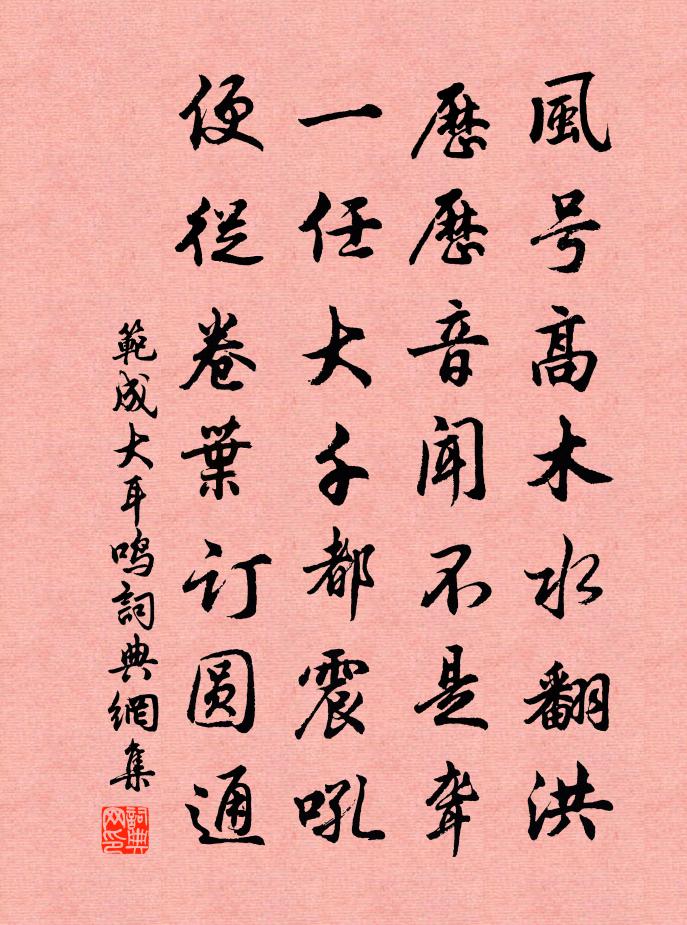 風号高木水翻洪
歷歷音闻不是聋
一任大千都震吼
便從卷葉订圆通
範成大耳鸣詞典網集
詞典网印